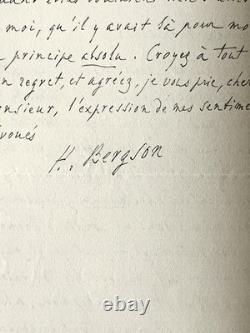 moi, qu'il y avait là pour mo
principe absolu. Croyez à tout
n regret, et agréez, je vous prie, cher
nsieur, l'expression de mes sentime
voués
H. Bergson
ebay